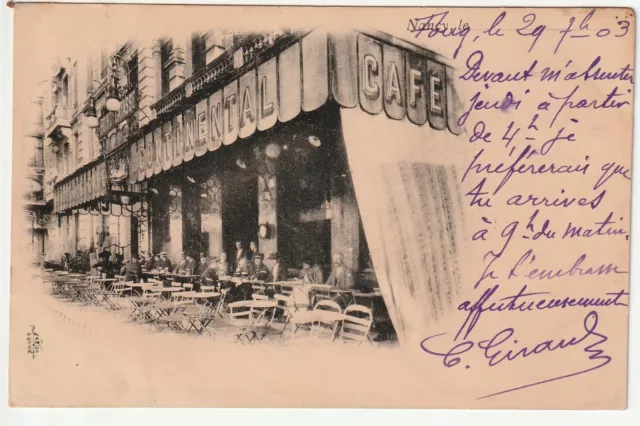 Nancy, le
Toug, le 29 7bre 03
CONTINENTAL
CAFÉ
Devant m'absenter
jeudi à partir
de 4h je
préfèrerais que
tu arrives
à 9h du matin.
Je t'embrasse
affectueusement
C. Giraud